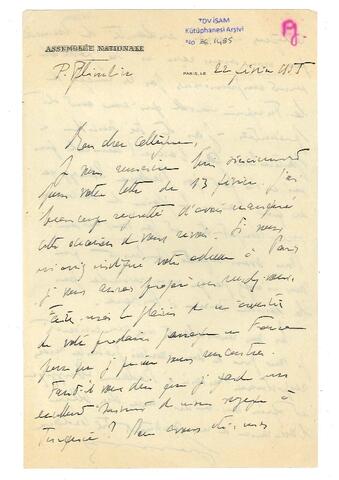 TDV İSAM
Kütüphanesi Arşivi
No 36.1485
ASSEMBLÉE NATIONALE
PARIS, LE 22 février 1955
Mon cher
Je vous remercie bien sincèrement
pour votre lettre du 13 février. J'ai
beaucoup regretté d'avoir manqué
cette occasion de vous revoir. Si vous
m'aviez indiqué votre adresse à Paris
je vous aurais proposé un rendez-vous.
Faites moi le plaisir de m'avertir
de votre prochain passage en France
pour que je puisse vous rencontrer.
Faut-il vous dire que je garde un
excellent souvenir de mon voyage à
? Nous avons